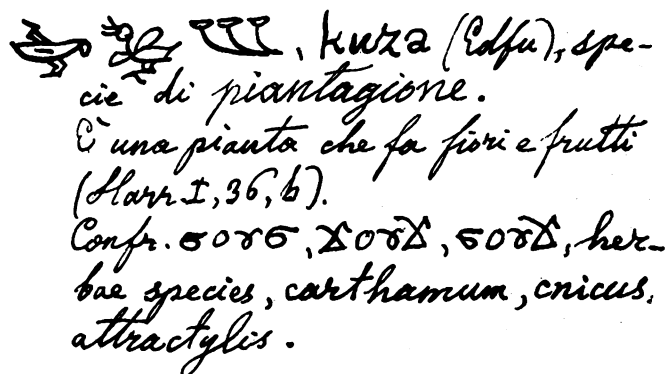 , kuza (Edfu), spe-
cie di piantagione.
È una pianta che fa fiori e frutti
(Harr. I, 36, b).
Confr. ϭⲟⲩϭ, ϫⲟⲩϫ, ϭⲟⲩϫ, her-
bae species, carthamum, cnicus,
attractylis.